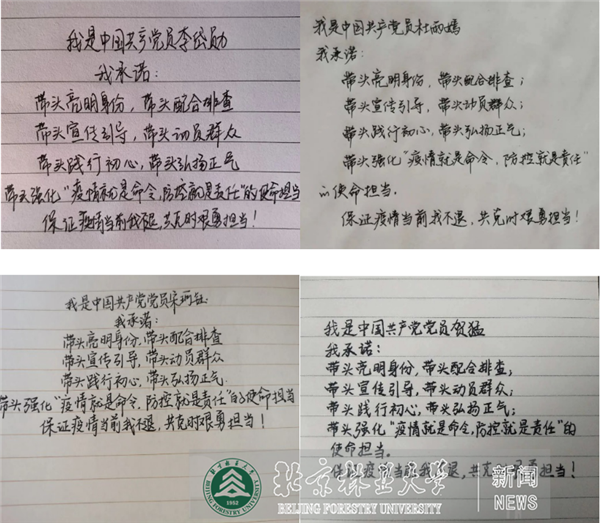 我是中国共产党员李岱勋
我承诺：
带头亮明身份，带头配合排查
带头宣传引导，带头动员群众
带头践行初心，带头弘扬正气
带头强化“疫情就是命令，防控就是责任”的使命担当
保证疫情当前我不退，共克时艰勇担当！
我是中国共产党员杜雨嫣
我承诺：
带头亮明身份，带头配合排查；
带头宣传引导，带头动员群众；
带头践行初心，带头弘扬正气；
带头强化“疫情就是命令，防控就是责任”
的使命担当。
保证疫情当前我不退，共克时艰勇担当！
我是中国共产党党员宋珂
我承诺：
带头亮明身份，带头配合排查
带头宣传引导，带头动员群众
带头践行初心，带头弘扬正气
带头强化“疫情就是命令，防控就是责任”的使命担当
保证疫情当前我不退，共克时艰勇担当！
我是中国共产党党员贺猛
我承诺：
带头亮明身份，带头配合排查；
带头宣传引导，带头动员群众；
带头践行初心，带头弘扬正气；
带头强化“疫情就是命令，防控就是责任”的
使命担当。
保证疫情当前我不退，共克时艰勇担当！
北京林业大学
BEIJING FORESTRY UNIVERSITY
新闻
NEWS
1952